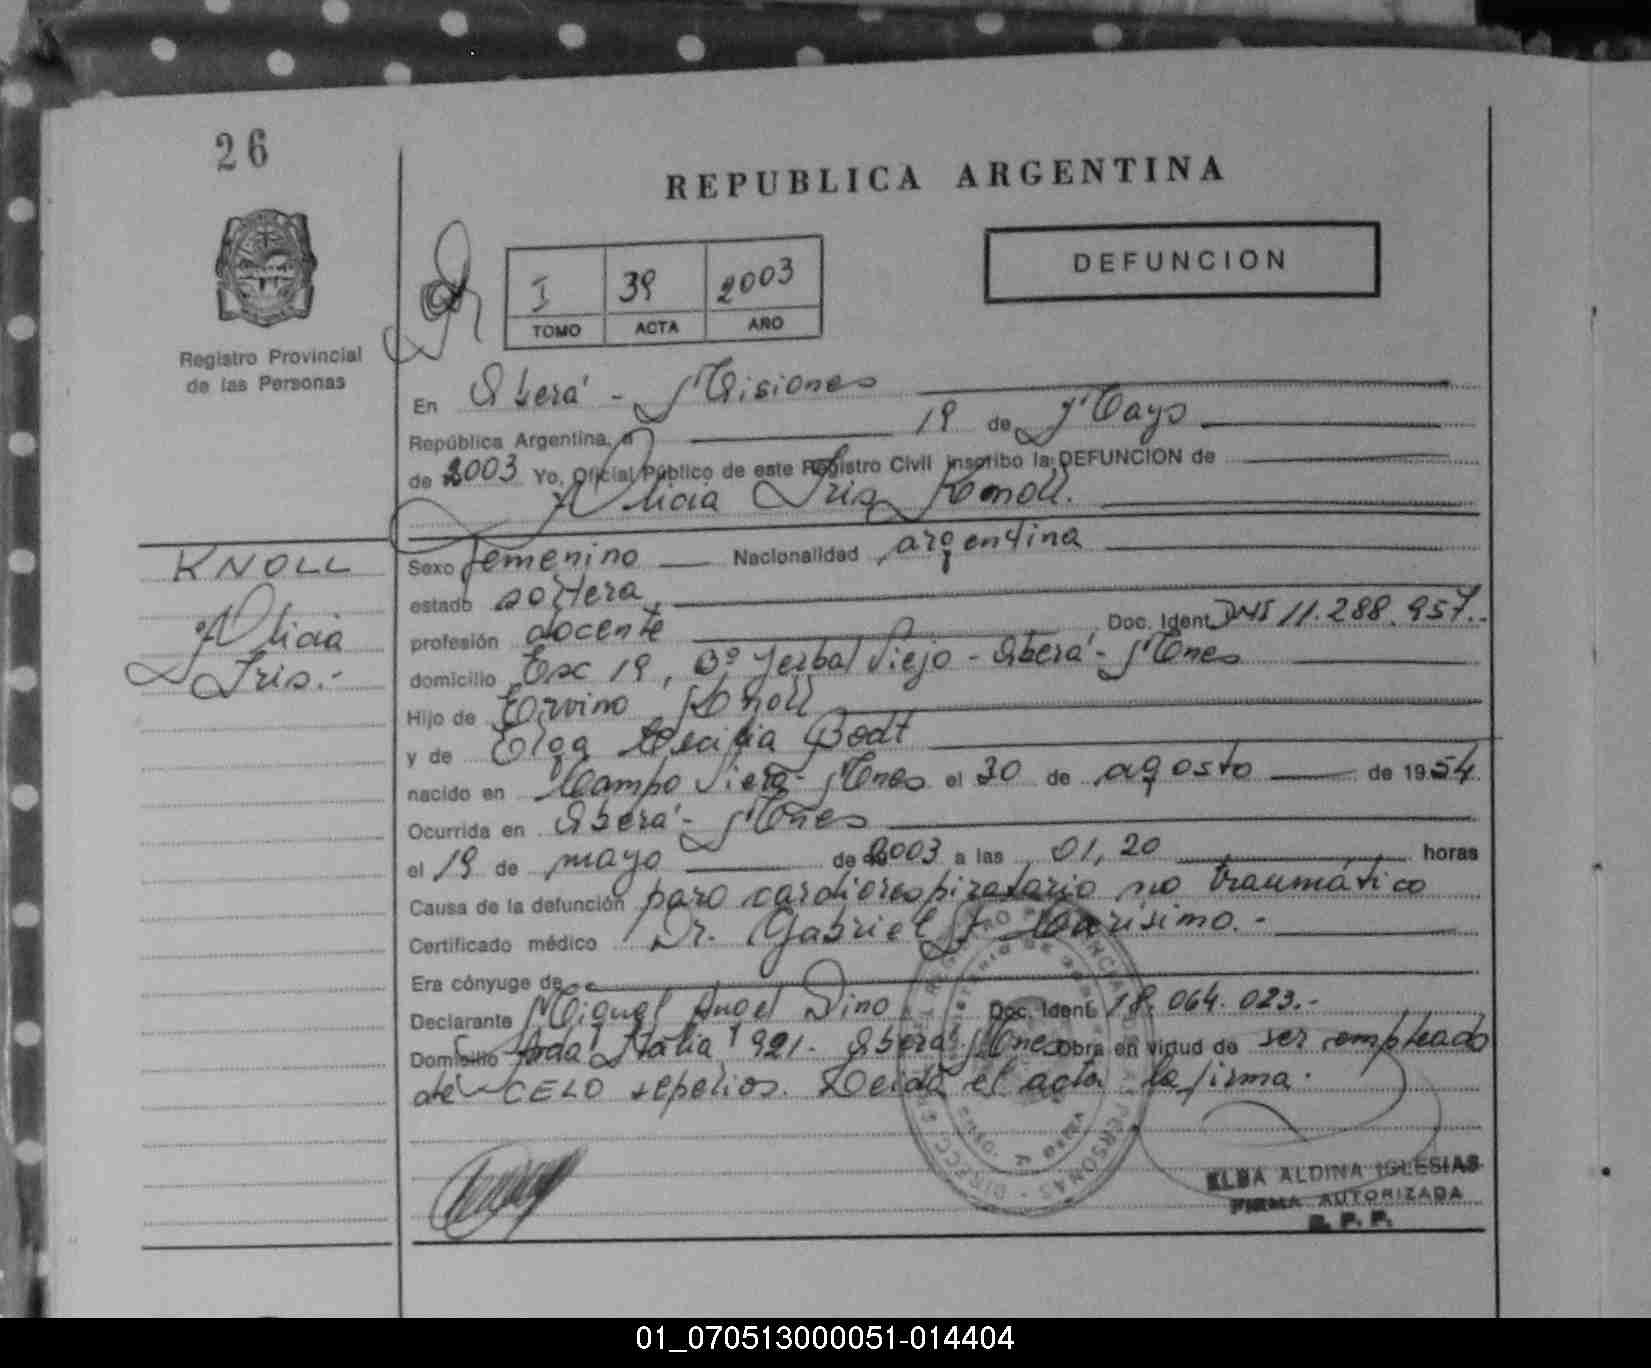 26
REPUBLICA ARGENTINA
DEFUNCION
I 39 2003
TOMO ACTA AÑO
Registro Provincial
de las Personas
En Oberá - Misiones
República Argentina, a 19 de Mayo
de 2003 Yo, Oficial Público de este Registro Civil inscribo la DEFUNCION de
Alicia Iris Knoll.
KNOLL
Alicia
Iris.-
Sexo femenino Nacionalidad argentina
estado soltera
profesión docente Doc. Ident. DNI 11.288.957.-
domicilio Esc 19, Bº Yerbal Viejo - Oberá - Mnes
Hijo de Ervino Knoll
y de Olga Cecilia Bodt
nacido en Campo Viera - Mnes el 30 de agosto de 1954.
Ocurrida en Oberá - Mnes
el 19 de mayo de 2003 a las 01,20 horas
Causa de la defunción paro cardiorespiratorio no traumático
Certificado médico Dr. Gabriel Marisimo.-
Era cónyuge de
Declarante Miguel Angel Dino Doc. Ident. 18.064.023.-
Domicilio Avda Italia 921. Oberá Mnes Obra en virtud de ser empleado
de CELO sepelios. Leída el acta la firma.
ELBA ALDINA IGLESIAS
FIRMA AUTORIZADA
R. P. P.
01_070513000051-014404